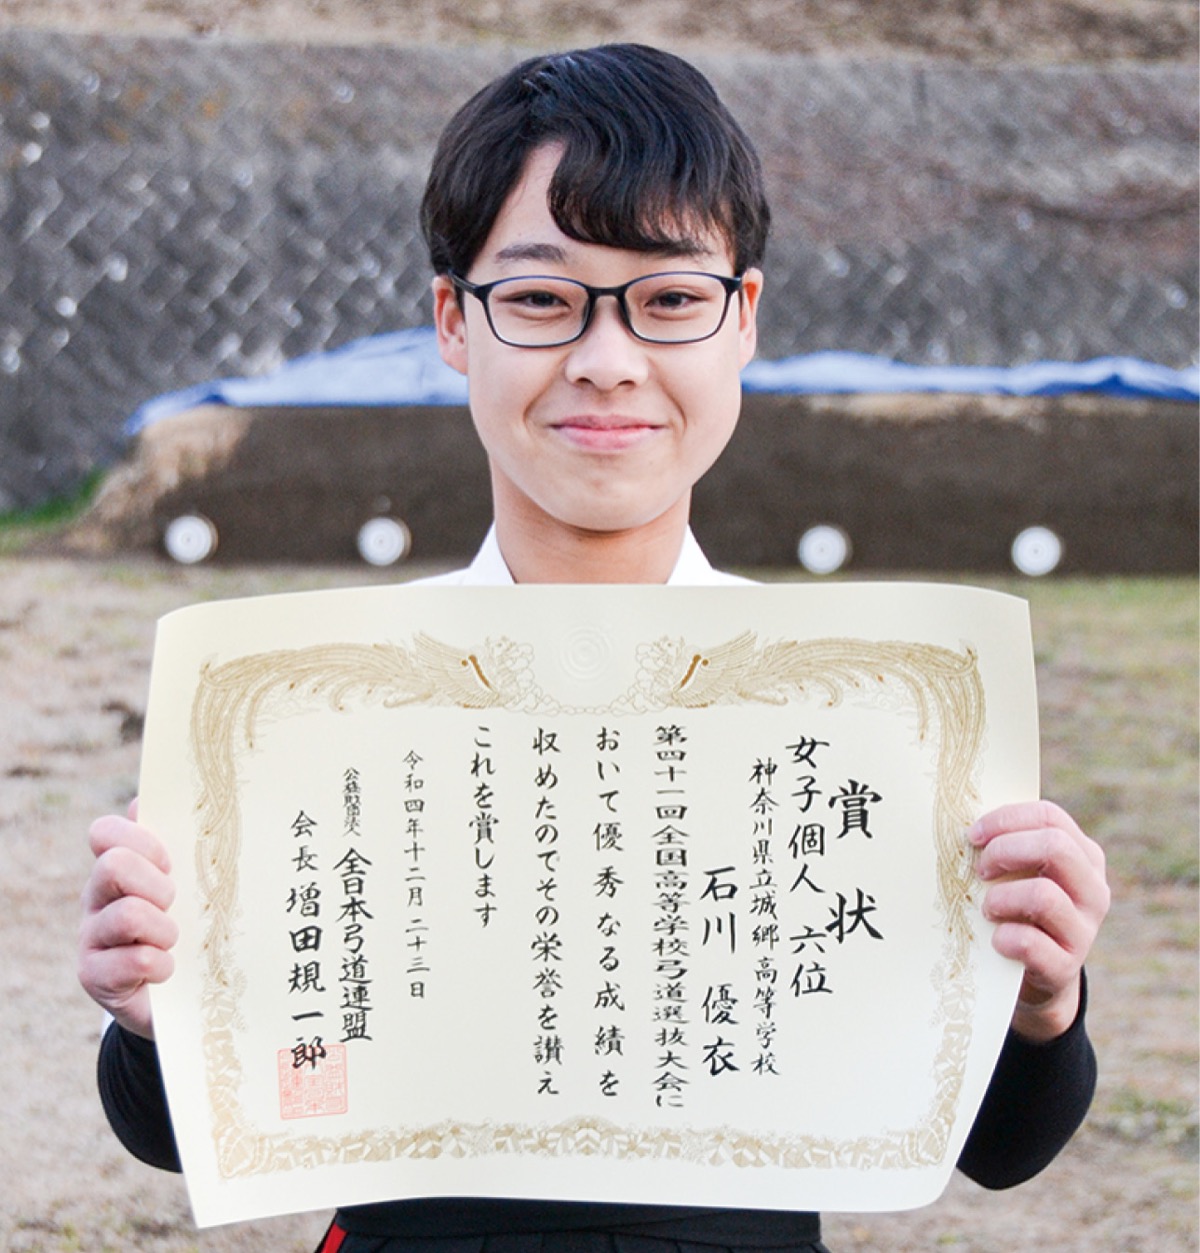 賞状
女子個人 六位
神奈川県立城郷高等学校
石川 優衣
第四十一回全国高等学校弓道選抜大会に
おいて優秀なる成績を
収めたのでその栄誉を讃え
これを賞します
令和四年十二月二十三日
公益財団法人 全日本弓道連盟
会長 増田規一郎